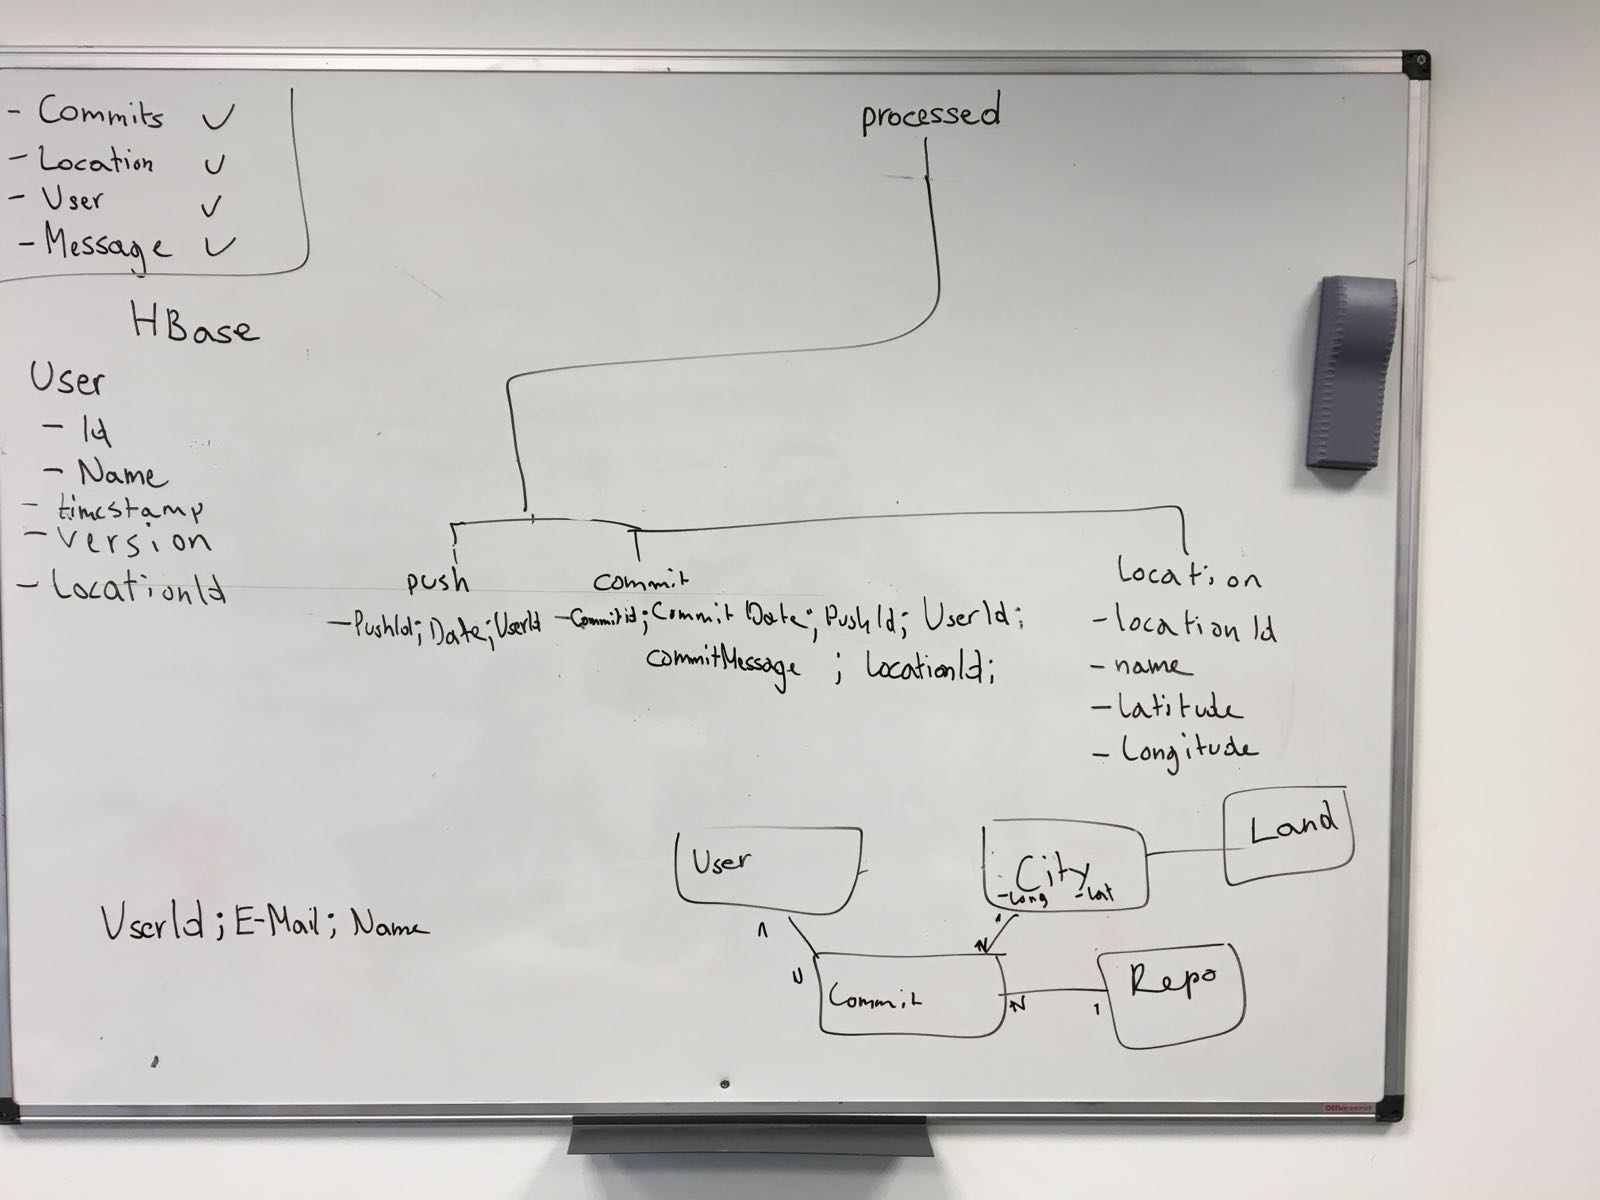 - Commits ✓
- Location ✓
- User ✓
- Message ✓
HBase
User
- Id
- Name
- timestamp
- Version
- LocationId
processed
push
- PushId; Date; UserId
commit
- Commitid; Commit Date; PushId; UserId;
commitMessage ; LocationId;
Location
- locationId
- name
- Latitude
- Longitude
UserId; E-Mail; Name
User
City
- Long - Lat
Land
1
N
N
Commit
N
1
Repo
Office DEPOT